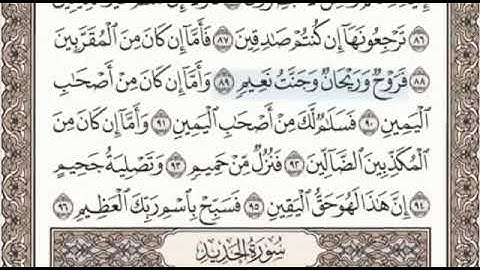 تَرْجِعُونَهَا إِن كُنتُمْ صَادِقِينَ ٨٧ فَأَمَّا إِن كَانَ مِنَ الْمُقَرَّبِينَ
٨٨ فَرَوْحٌ وَرَيْحَانٌ وَجَنَّتُ نَعِيمٍ ٨٩ وَأَمَّا إِن كَانَ مِنْ أَصْحَابِ
الْيَمِينِ ٩٠ فَسَلَامٌ لَّكَ مِنْ أَصْحَابِ الْيَمِينِ ٩١ وَأَمَّا إِن كَانَ مِنَ
الْمُكَذِّبِينَ الضَّالِّينَ ٩٢ فَنُزُلٌ مِّنْ حَمِيمٍ ٩٣ وَتَصْلِيَةُ جَحِيمٍ
٩٤ إِنَّ هَٰذَا لَهُوَ حَقُّ الْيَقِينِ ٩٥ فَسَبِّحْ بِاسْمِ رَبِّكَ الْعَظِيمِ ٩٦
سُورَةُ الْحَدِيدِ